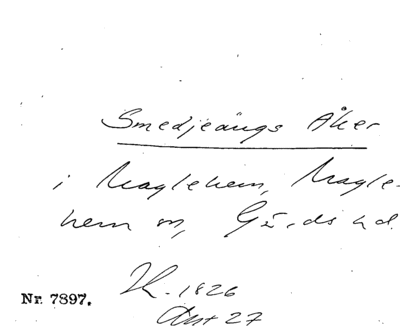 Smedjeängs Åker
i Maglehem, Magle-
hem sn, Gärds hd.
Nr. 7897.
1826
Akt 27